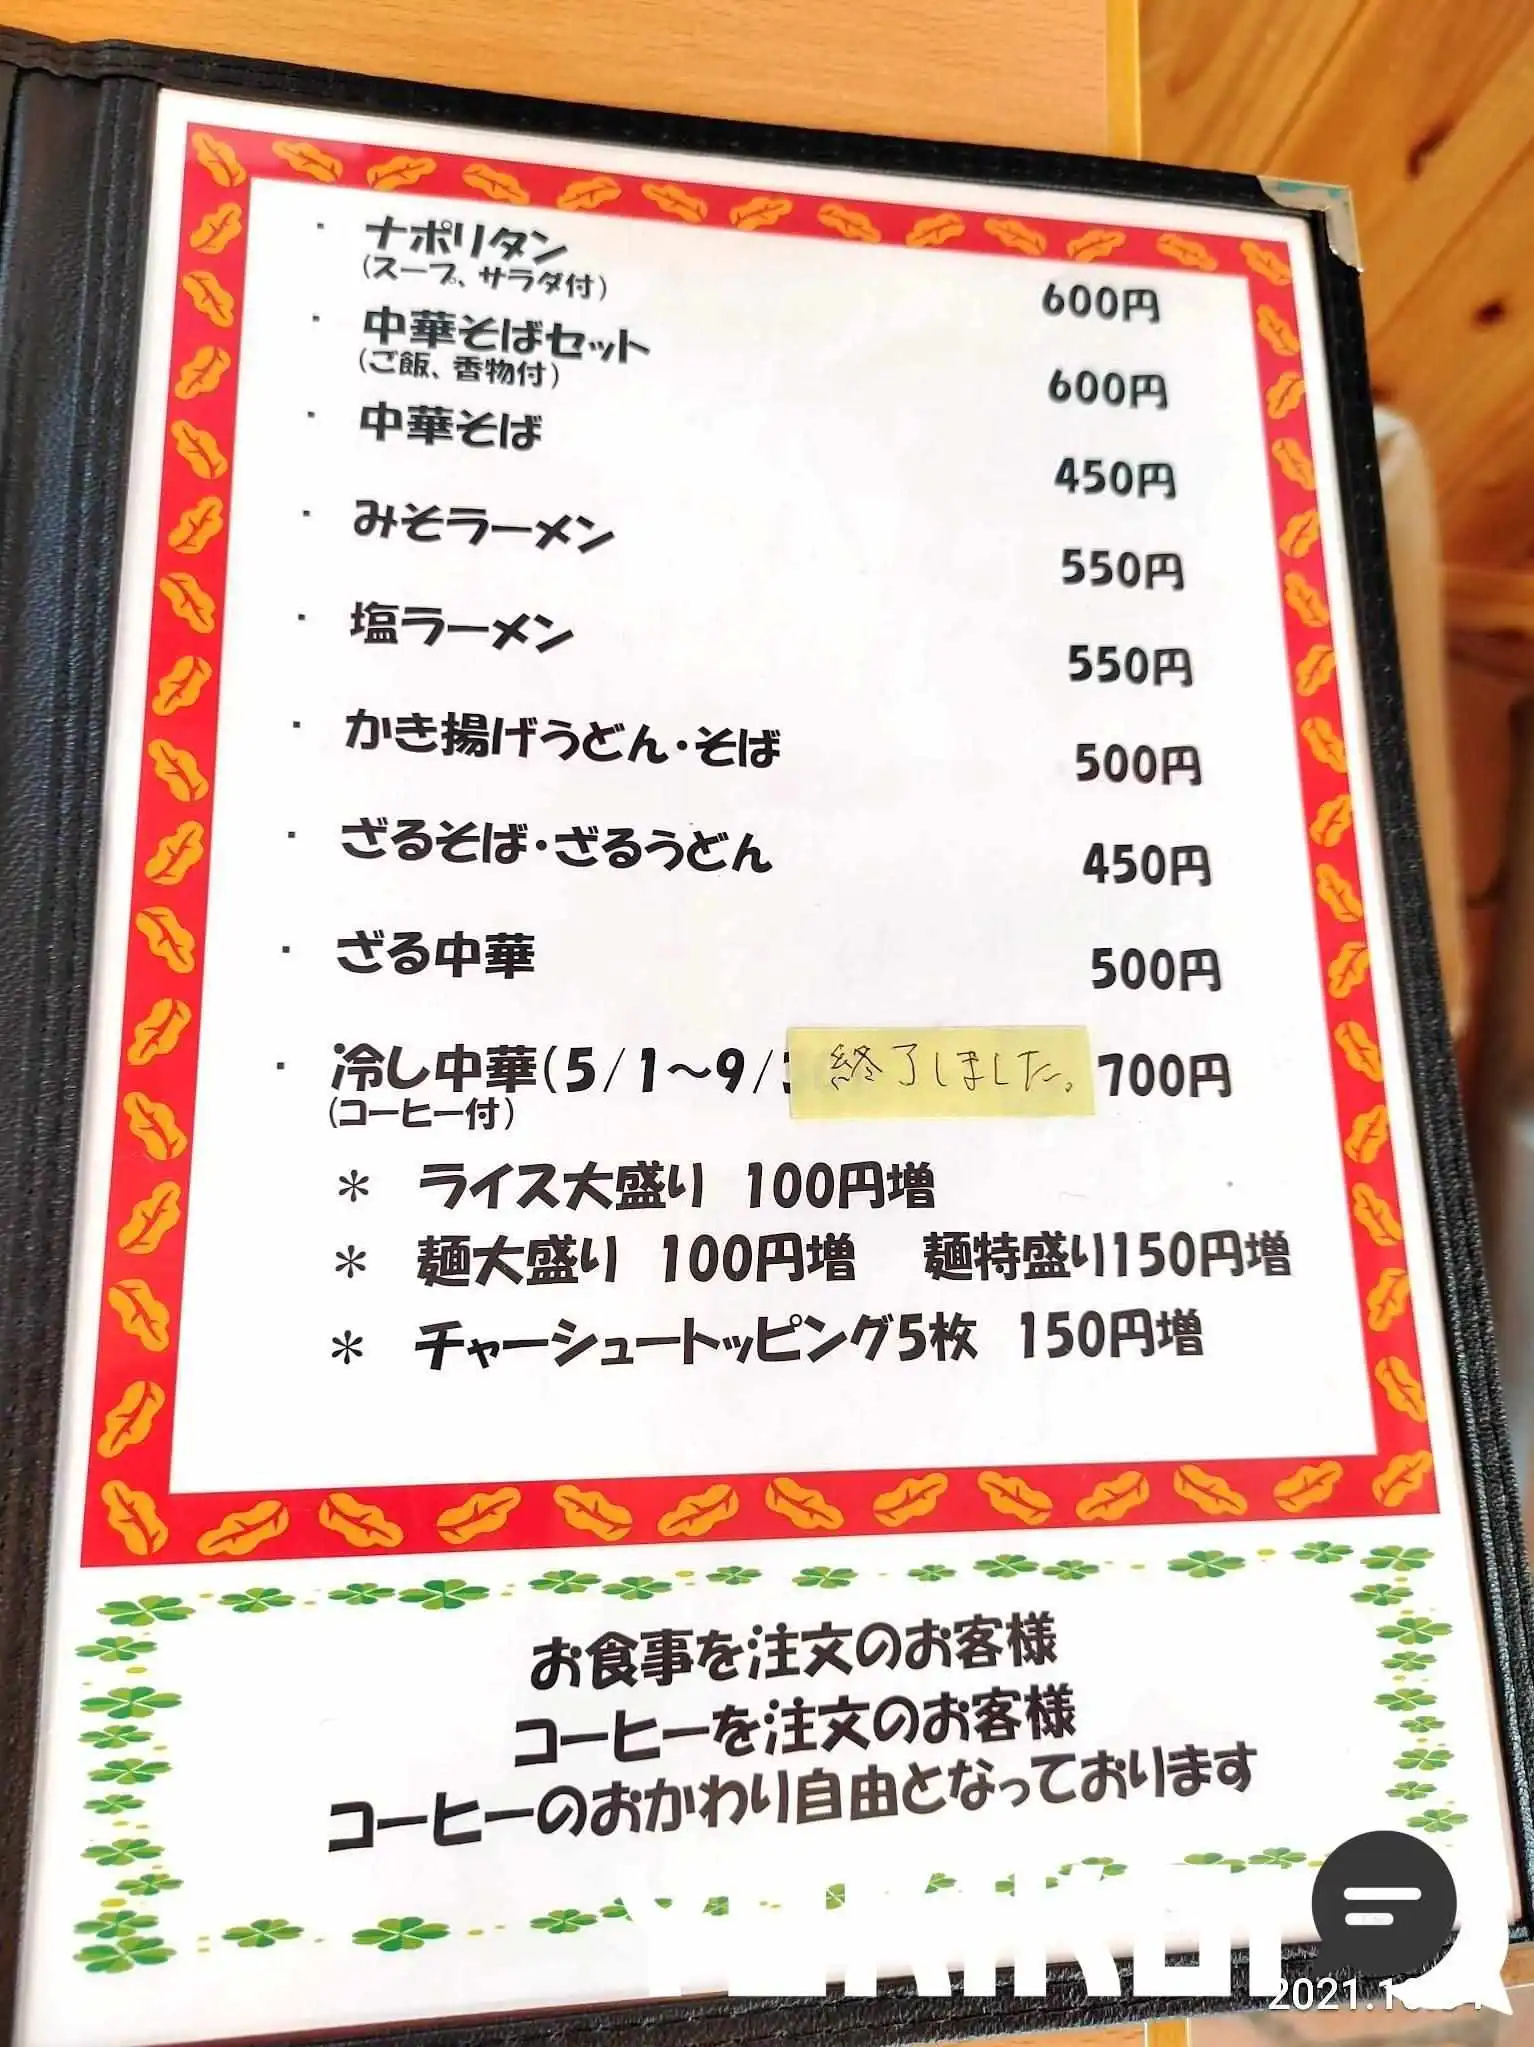 ・ ナポリタン 600円
(スープ、サラダ付)
・ 中華そばセット 600円
(ご飯、香物付)
・ 中華そば 450円
・ みそラーメン 550円
・ 塩ラーメン 550円
・ かき揚げうどん・そば 500円
・ ざるそば・ざるうどん 450円
・ ざる中華 500円
・ 冷し中華(5/1～9/ 終了しました。 700円
(コーヒー付)
＊ ライス大盛り 100円増
＊ 麺大盛り 100円増 麺特盛り150円増
＊ チャーシュートッピング5枚 150円増
お食事を注文のお客様
コーヒーを注文のお客様
コーヒーのおかわり自由となっております